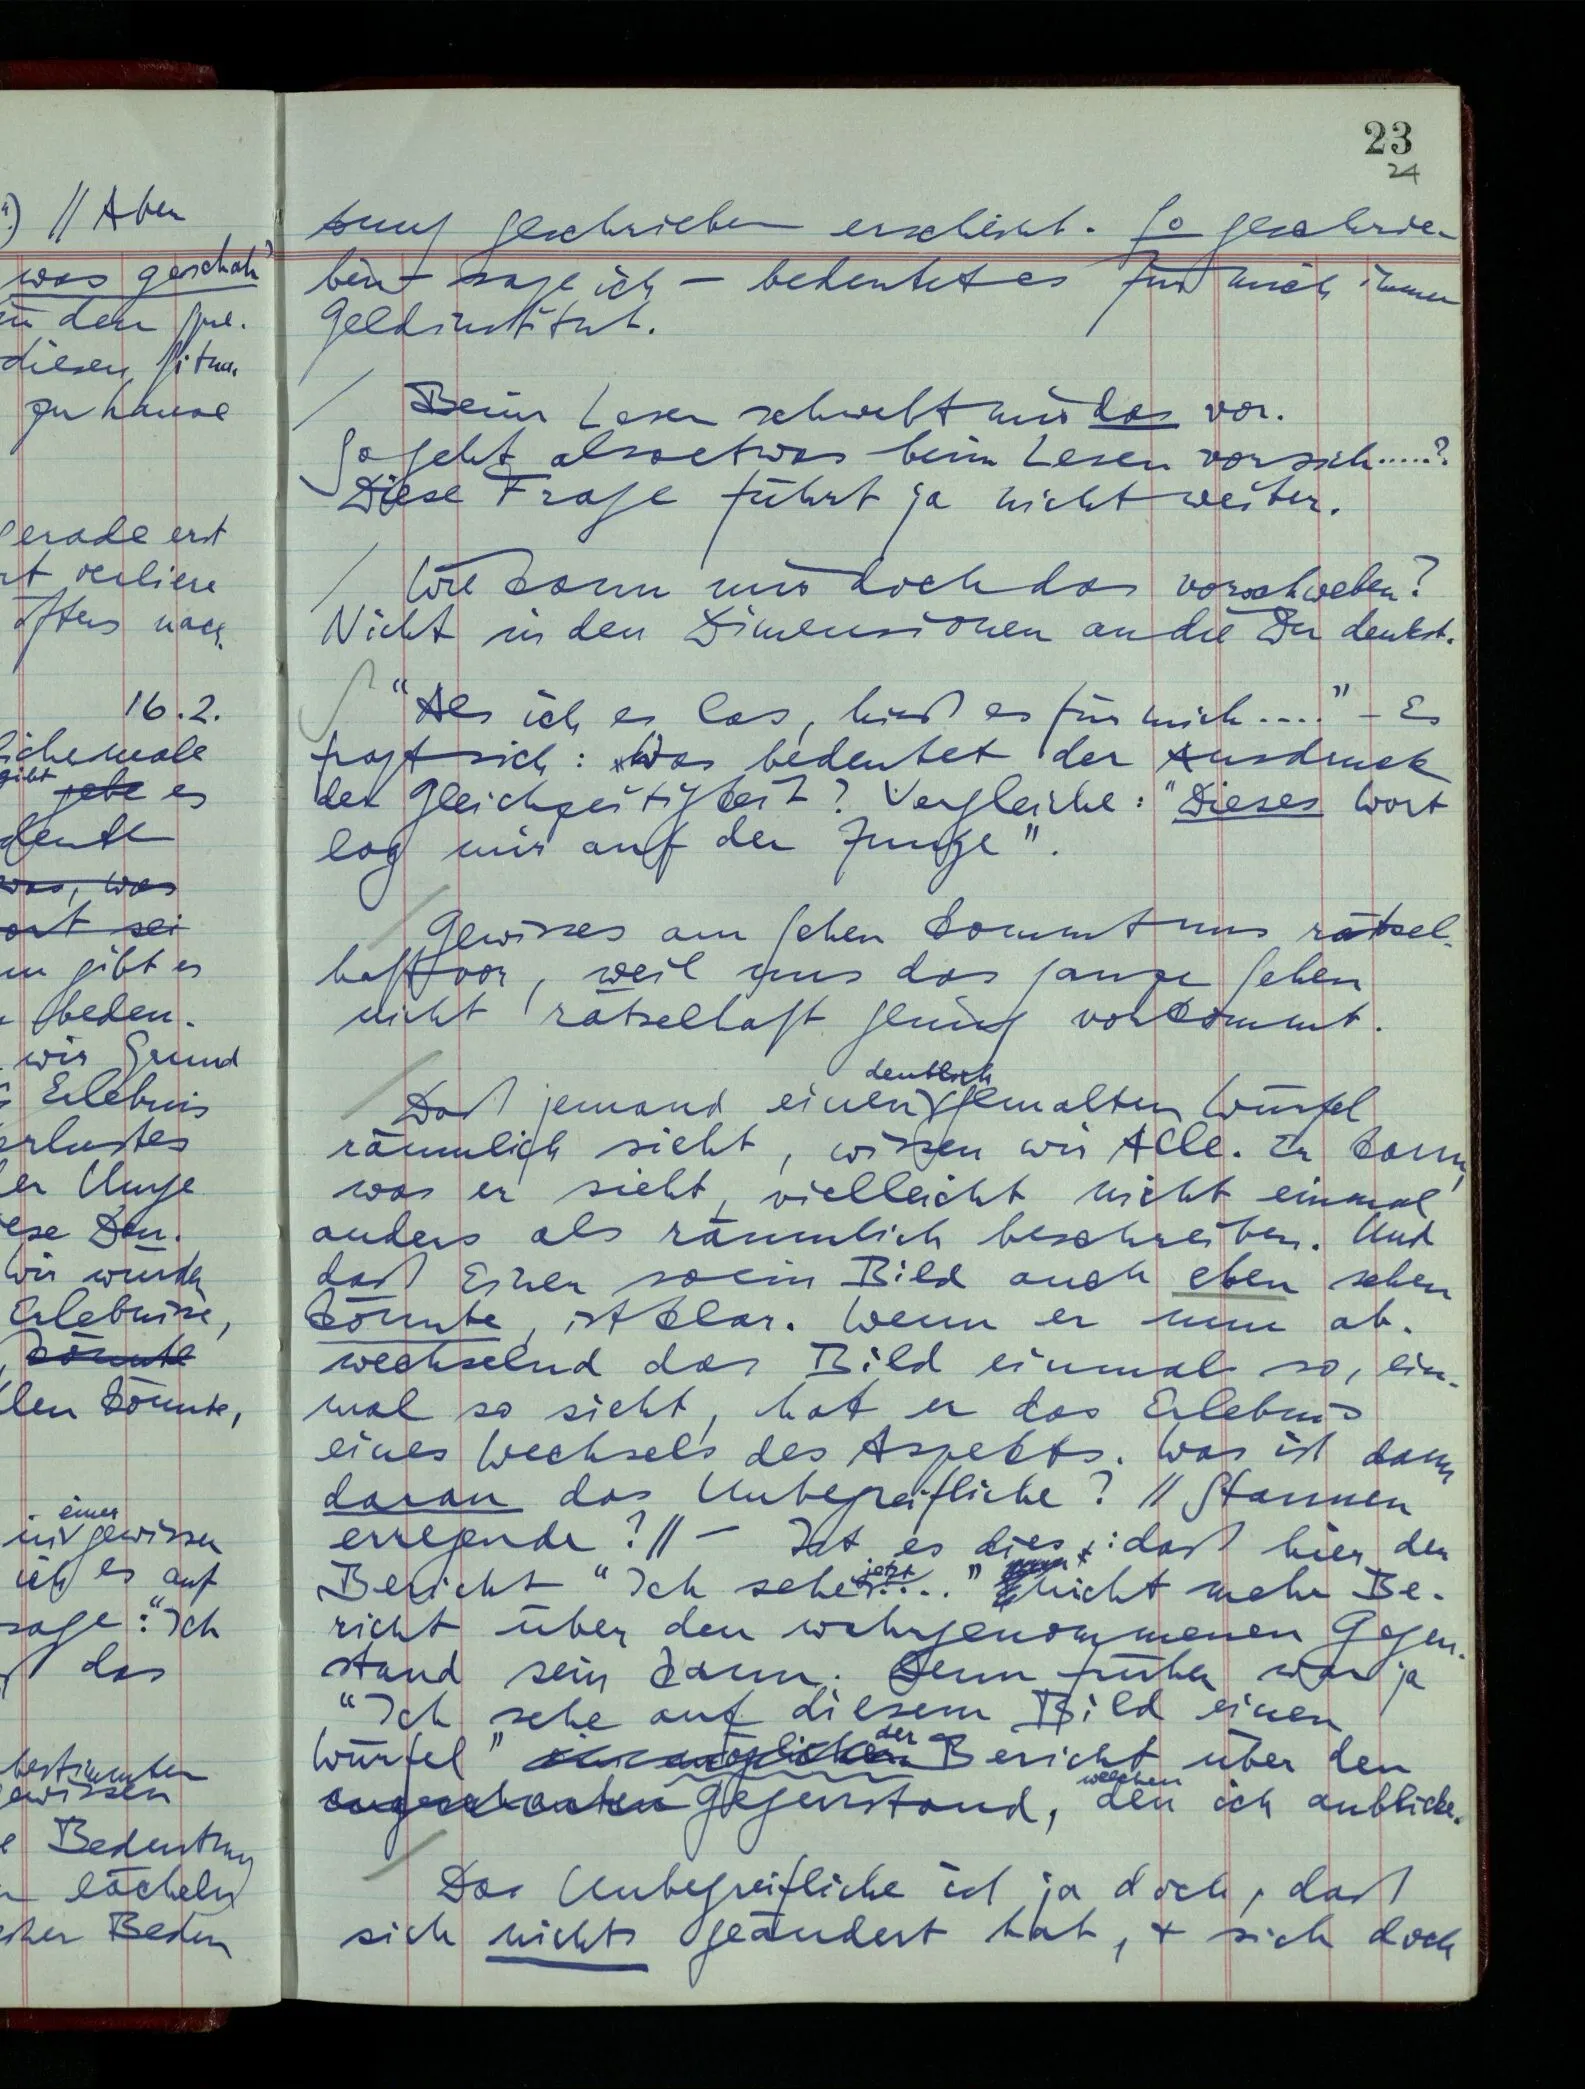 23
24
geschrieben erscheint. So geschrie-
ben – sage ich – bedeutet es für mich immer
Geldinstitut.
/ Beim Lesen schwebt mir das vor.
So geht also etwas beim Lesen vor sich.....?
Diese Frage führt ja nicht weiter.
/ Wie kann mir doch das vorschweben?
Nicht in den Dimensionen an die Du denkst.
"Als ich es las, hieß es für mich...." – Es
fragt sich: Was bedeutet der Ausdruck
der Gleichzeitigkeit? Vergleiche: "Dieses Wort
lag mir auf der Zunge".
/ Gewisses am Sehen kommt uns rätsel-
haft vor, weil uns das ganze Sehen
nicht rätselhaft genug vorkommt.
deutlich
/ Daß jemand einen gemalten Würfel
räumlich sieht, wissen wir Alle. Er kann,
was er sieht, vielleicht nicht einmal
anders als räumlich beschreiben. Und
daß Einer so ein Bild auch eben sehen
könnte, ist klar. Wenn er nun ab-
wechselnd das Bild einmal so, ein-
mal so sieht, hat er das Erlebnis
eines Wechsels des Aspekts. Was ist dann
daran das Unbegreifliche? // Staunen
erregende? // – Ist es dies: daß hier der
jetzt
Bericht "Ich sehe ...." nicht mehr Be-
richt über den wahrgenommenen Gegen-
stand sein kann. Denn früher war ja
"Ich sehe auf diesem Bild einen
der
Würfel" Bericht über den
welchen
angeschauten Gegenstand, den ich anblicke.
/ Das Unbegreifliche ist ja doch, daß
sich nichts geändert hat, + sich doch
// Aber
was geschah
in den
diesen Situa-
zu hause
gerade erst
verliere
öfters nach
16.2.
gibt
jebe es
was, was
sei
gibt es
beden-
wir Grund
Erlebnis
Wir würden
Erlebnisse,
könnte
könnte,
einer
in gewissen
ich es auf
sage: "Ich
das
bestimmten
gewissen
Bedeutung
lächeln